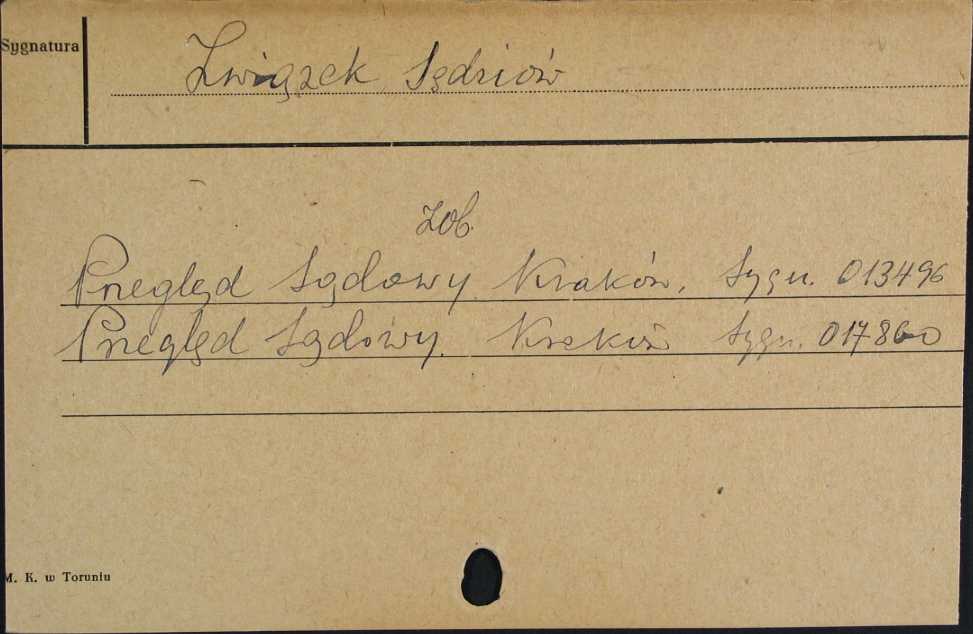 Sygnatura
Związek Sędziów
zob.
Przegląd Sądowy Kraków, Sygn. 013496
Przegląd Sądowy. Kraków Sygn. 017860
M. K. w Toruniu